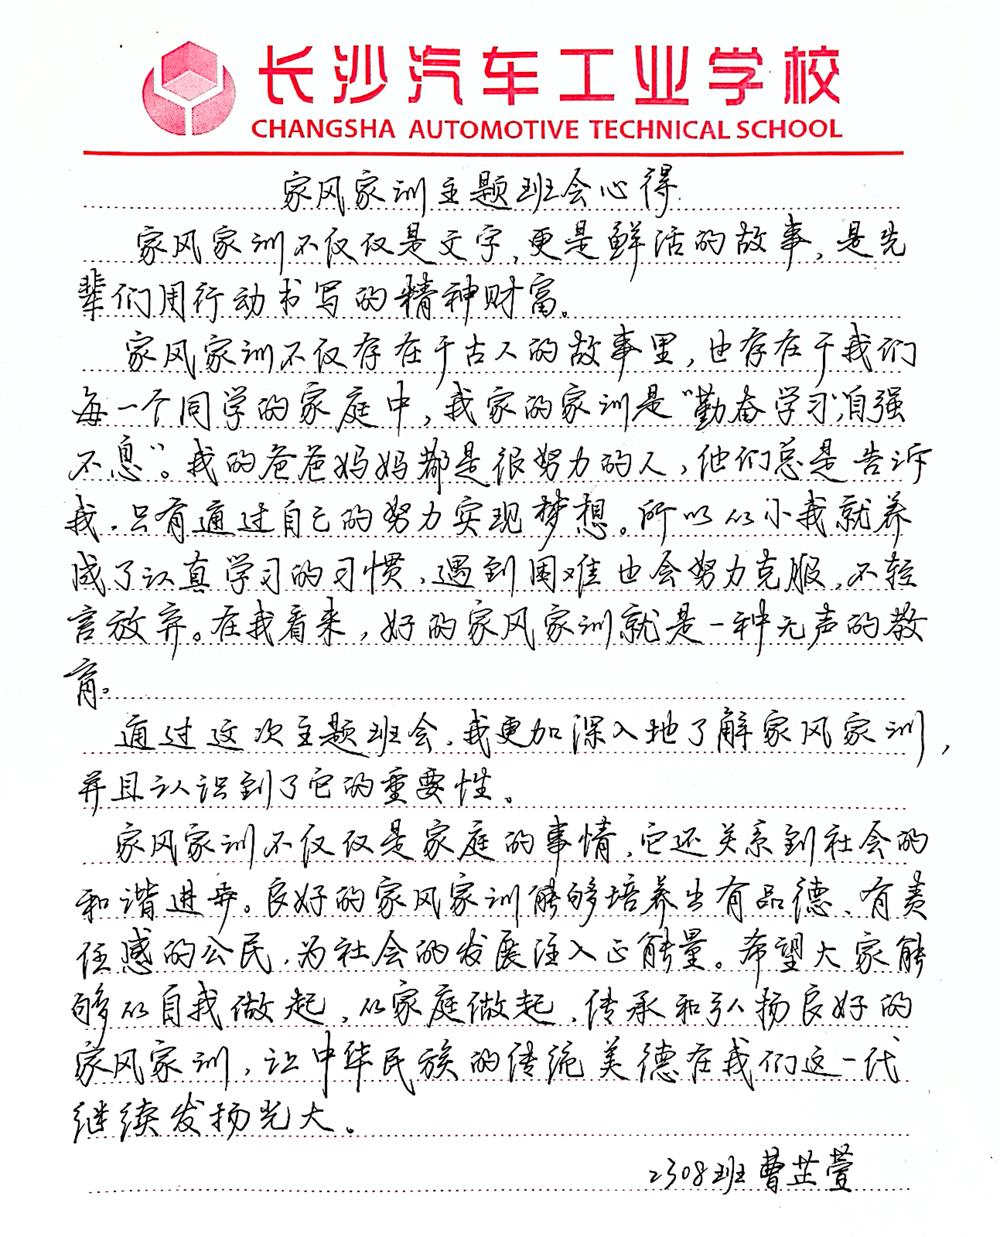 长沙汽车工业学校
CHANGSHA AUTOMOTIVE TECHNICAL SCHOOL
家风家训主题班会心得
家风家训不仅仅是文字，更是鲜活的故事，是先
辈们用行动书写的精神财富。
家风家训不仅存在于古人的故事里，也存在于我们
每一个同学的家庭中，我家的家训是“勤奋学习，自强
不息”。我的爸爸妈妈都是很努力的人，他们总是告诉
我，只有通过自己的努力实现梦想。所以从小我就养
成了认真学习的习惯，遇到困难也会努力克服，不轻
言放弃。在我看来，好的家风家训就是一种无声的教
育。
通过这次主题班会，我更加深入地了解家风家训，
并且认识到了它的重要性。
家风家训不仅仅是家庭的事情，它还关系到社会的
和谐进步。良好的家风家训能够培养出有品德、有责
任感的公民，为社会的发展注入正能量。希望大家能
够从自我做起，从家庭做起，传承和弘扬良好的
家风家训，让中华民族的传统美德在我们这一代
继续发扬光大。
2308班 曹芷萱